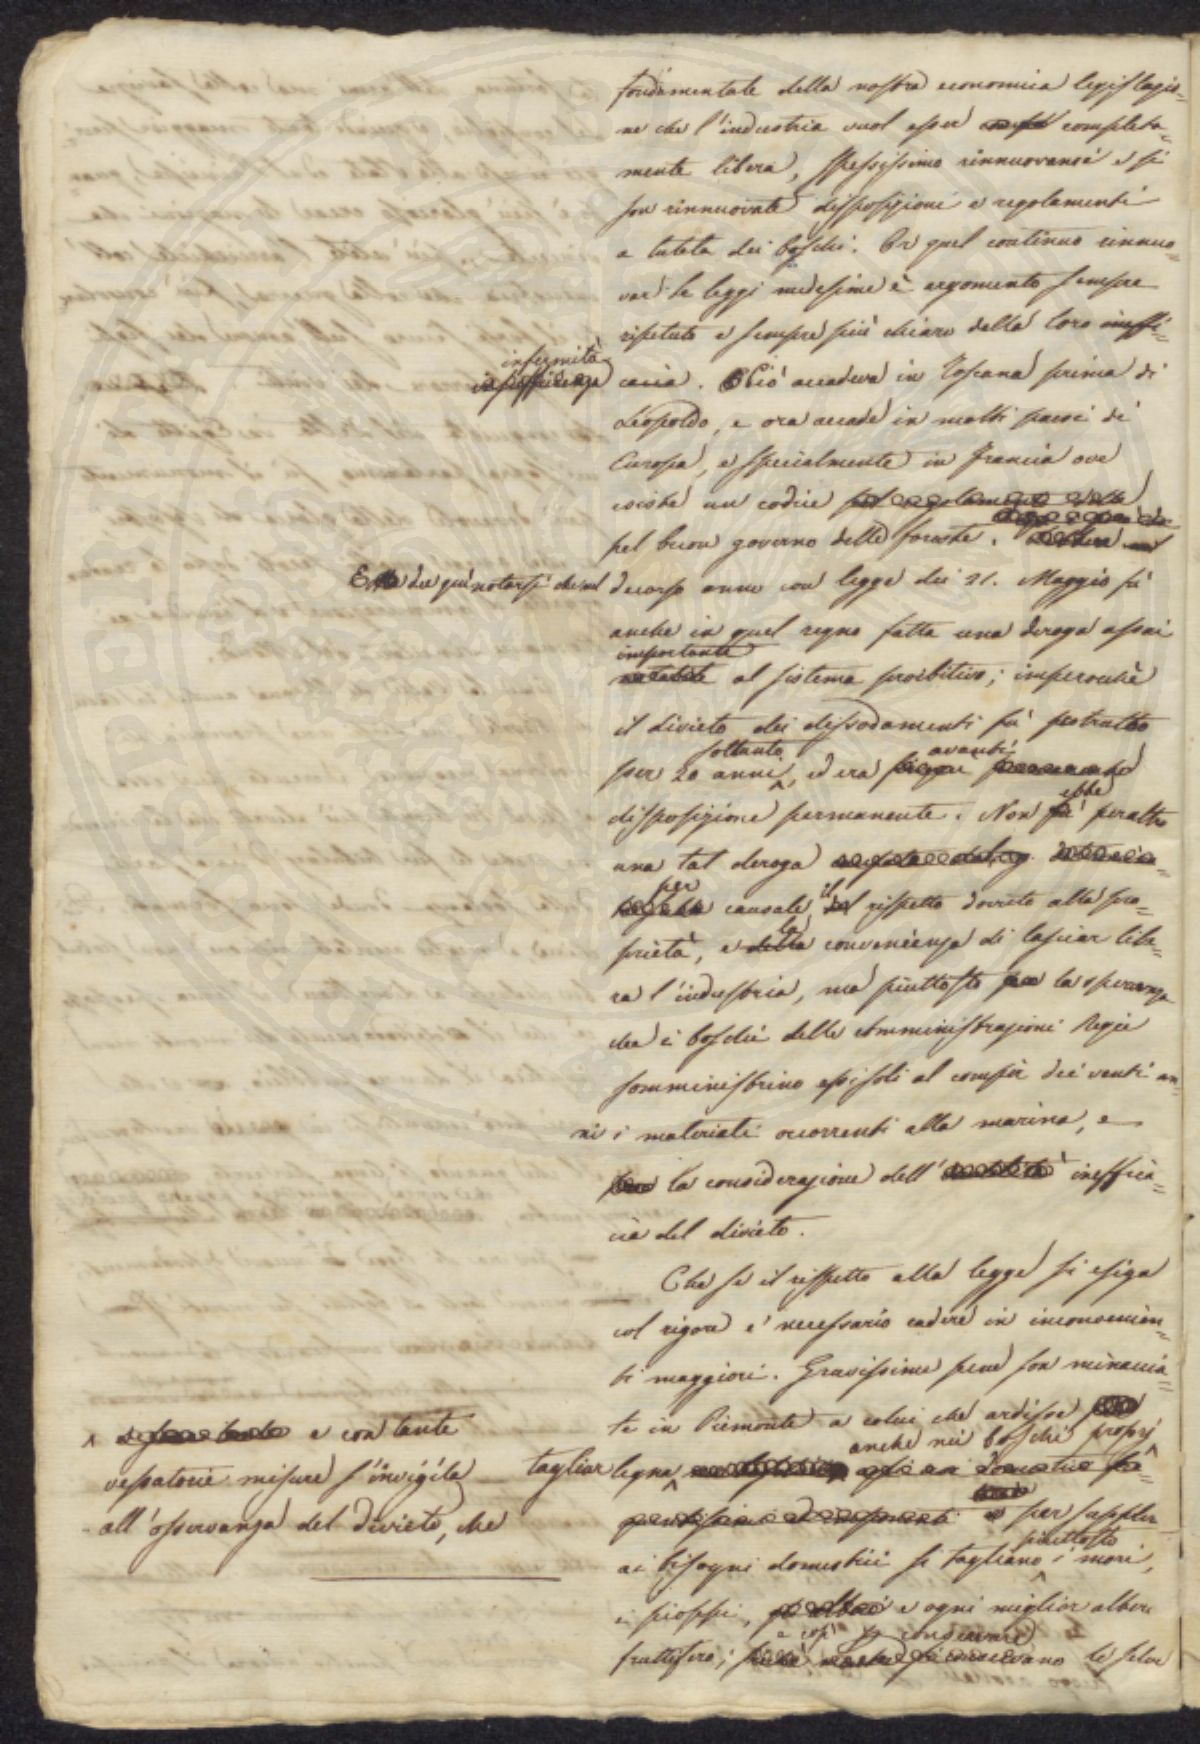 fondamentale della nostra economica legislazio=
ne che l'industria vuol esser completa=
mente libera, spessissimo rinnuovansi e si
son rinnuovate disposizioni e regolamenti
a tutela dei boschi. Or quel continuo rinnuo=
var le leggi medesime è argomento sempre
ripetuto e sempre più chiaro della loro ineffi=
infermità
insufficienza
cacia. Ciò accadeva in Toscana prima di
Leopoldo, e ora accade in molti paesi di
Europa, e specialmente in Francia ove
esiste un codice
pel buon governo delle foreste.
E dee qui notarsi che nel decorso anno con legge dei 21. Maggio fù
anche in quel regno fatta una deroga assai
importante
notabile al sistema proibitivo; imperocchè
il divieto dei dissodamenti fù protratto
soltanto avanti
per 20 anni, ed era
disposizione permanente. Non fù ebbe peraltro
una tal deroga
per il
causale del rispetto dovuto alla pro=
la
prietà, e della convenienza di lasciar libe=
ra l'industria, ma piuttosto la speranza
che i boschi delle Amministrazioni Regie
somministrino essi soli al compir dei venti an=
ni i materiali occorrenti alla marina, e
la considerazione dell' ineffica=
cia del divieto.
Che se il rispetto alla legge si esiga
col rigore è necessario cadere in inconvenien=
ti maggiori. Gravissime pene son minaccia=
te in Piemonte a colui che ardisse
anche nei boschi proprj
tagliar legna
^ e con tante
vessatorie misure s'invigila
all'osservanza del divieto, che
per supplir
piuttosto
ai bisogni domestici si tagliano i mori,
i pioppi, e ogni miglior albero
e così conservare
fruttifero; si conservano le selve